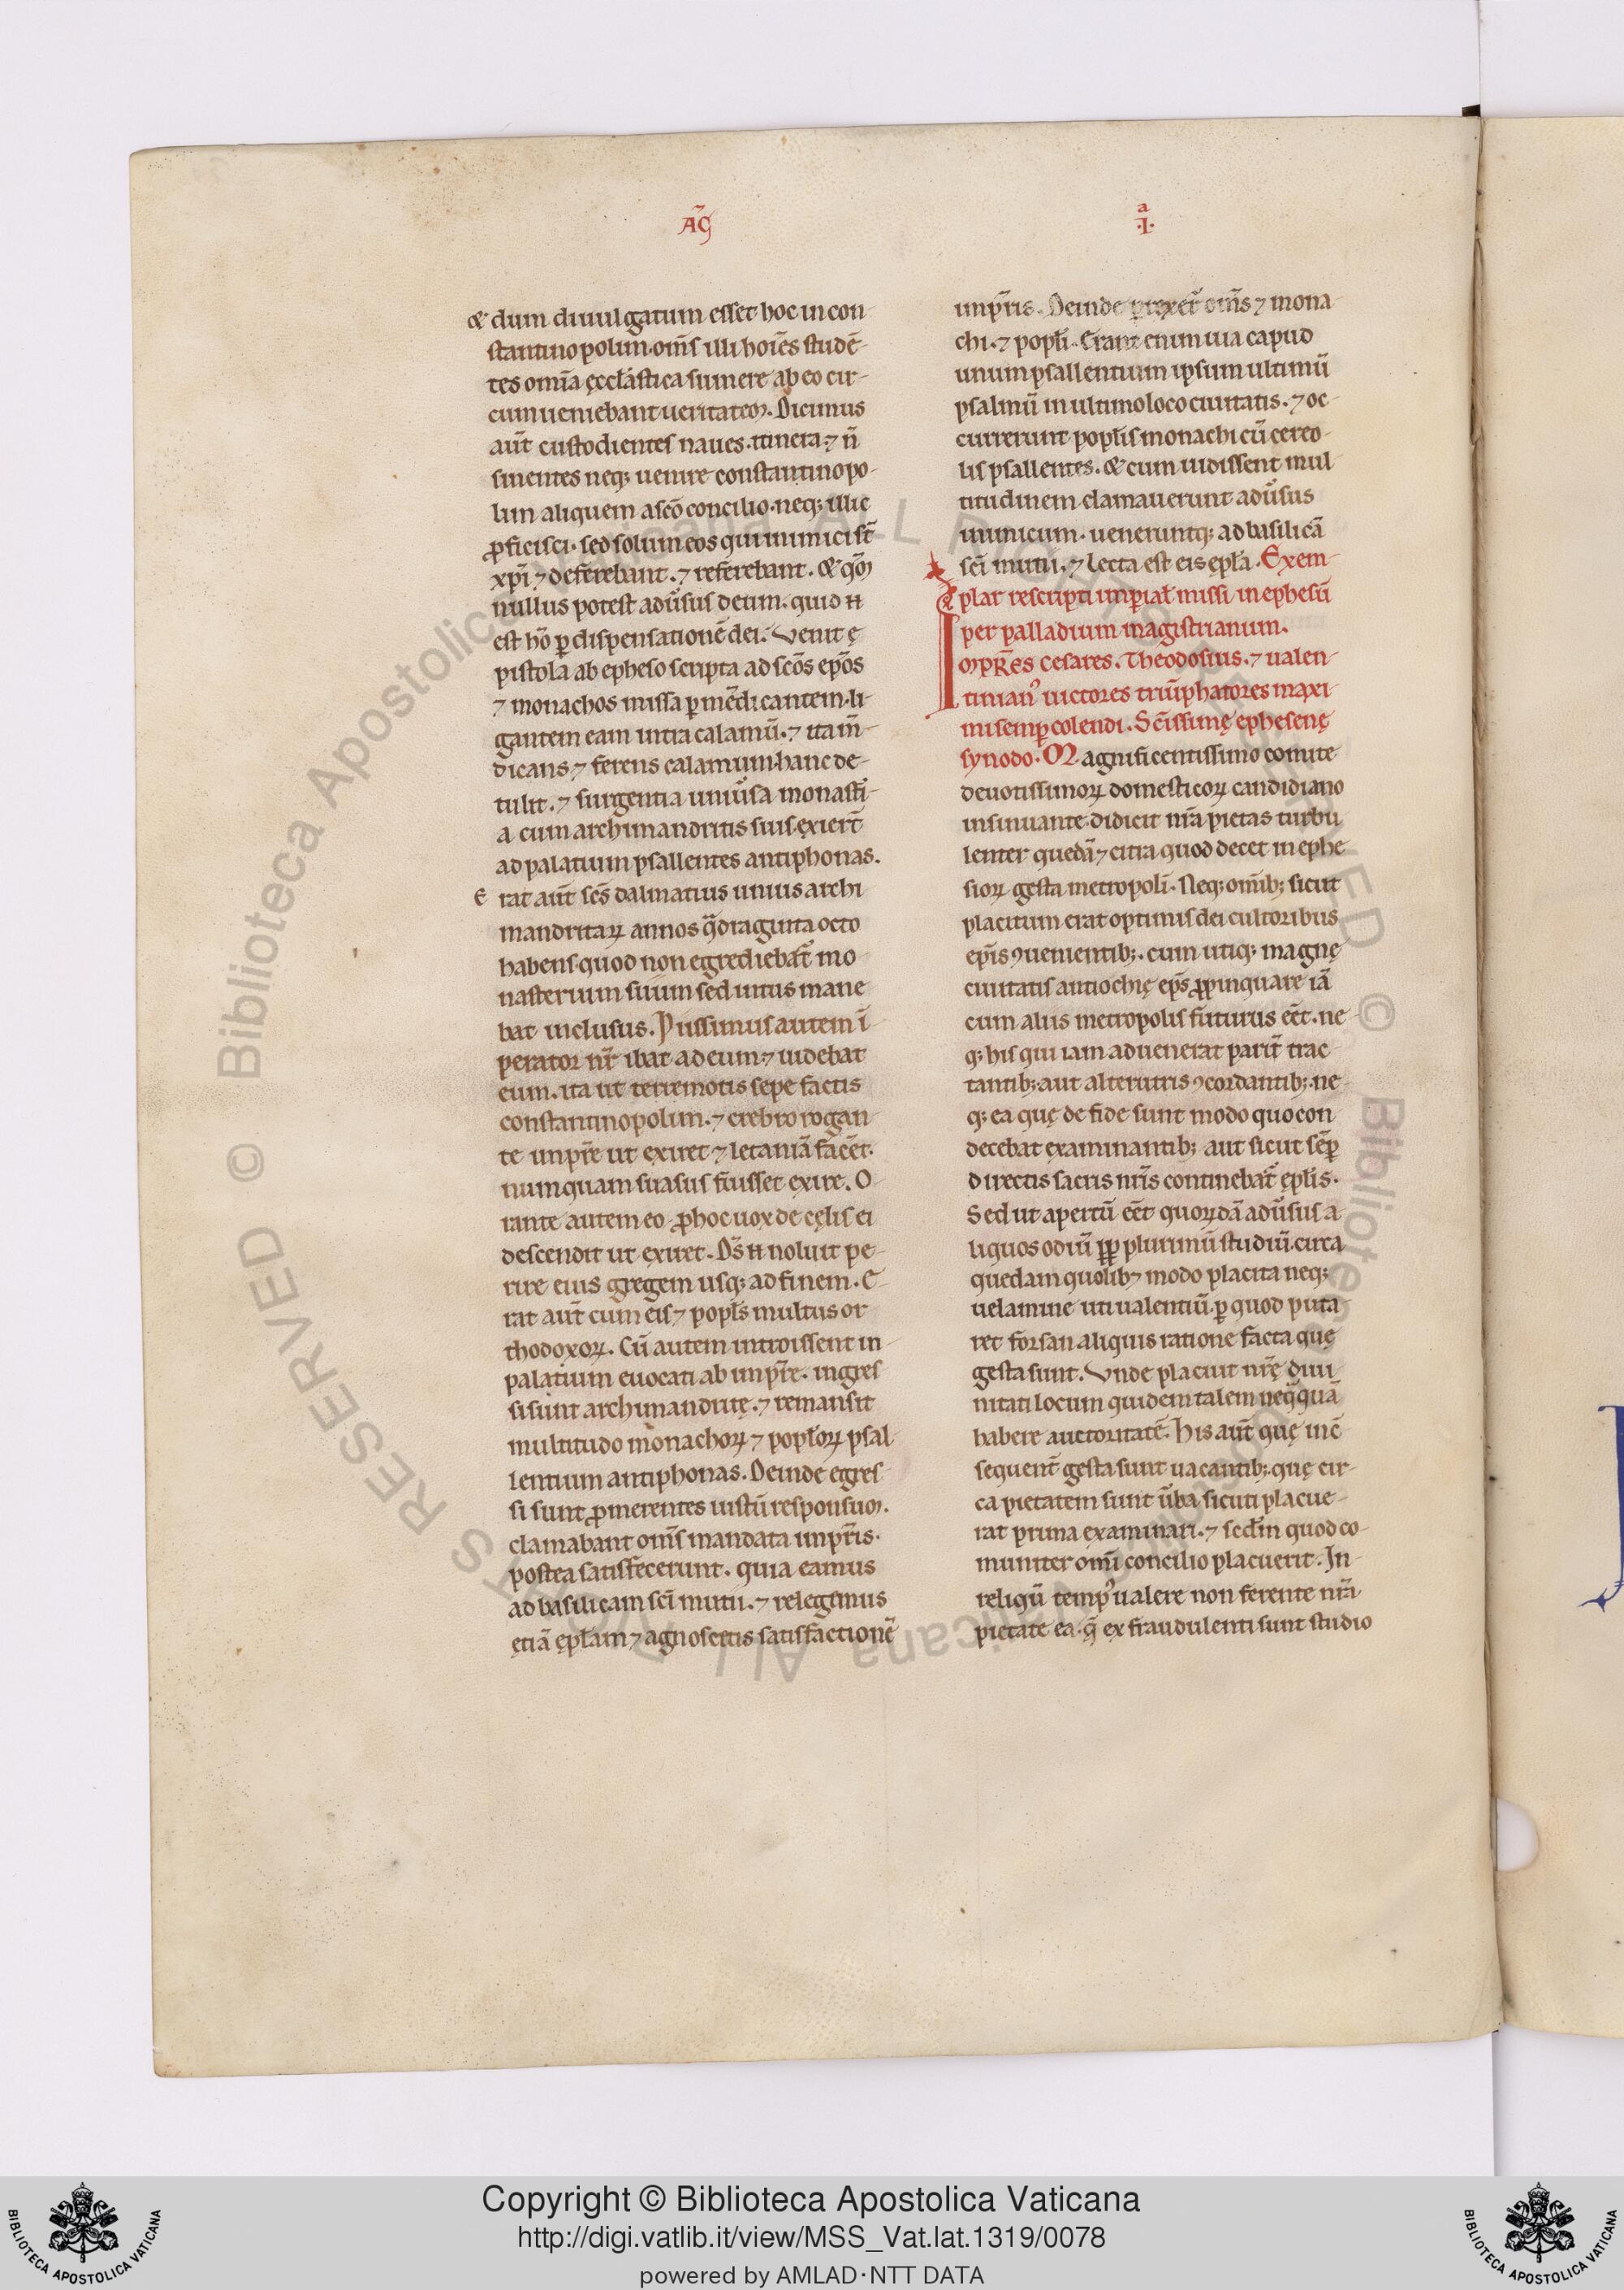 AG̃
& dum diuulgatum esset hoc in con-
stantinopolim. om̃s illi hoĩes studẽ-
tes omĩa ęccłastica sumere ab eo cir-
cumueniebant ueritatem. Dicimus
aut̃ custodientes naues. itinera. ⁊ ñ
sinentes neq; uenire constantinopo-
lim aliquem a scõ concilio. neq; illic
ꝓficisci. sed solum eos qui inimici st̃
xp̃i ⁊ deferebant. ⁊ referebant. & qm̃
nullus potest adũsus deum. quid n
est hõ ꝑ dispensationẽ dei. Venit ę
pistola ab epheso scripta ad scõs ep̃os
⁊ monachos missa ꝑ mẽdicantem. li-
gantem eam intra calamũ. ⁊ ita m̃-
dicans ⁊ ferens calamum hanc de-
tulit. ⁊ surgentia uniũsa monast̃i-
a cum archimandritis suis. exiert̃
ad palatium psallentes antiphonas.
E rat aut̃ scs̃ dalmatius unius archi
mandritaꝝ annos q̃draginta octo
habens. quod non egrediebat̃ mo
nasterium suum sed intus mane
bat inclusus. Piissimus autem ĩ-
perator nr̃ ibat ad eum ⁊ uidebat
eum. ita ut terremotis sepe factis
constantinopolim. ⁊ crebro rogan-
te imp̃re ut exiret ⁊ letaniã facẽt.
numquam suasus fuisset exire. O-
rante autem eo ꝓ hoc uox de cęlis ei
descendit ut exiret. Ds̃ n noluit pe-
rire eius gregem usq; ad finem. E-
rat aut̃ cum eis ⁊ popłs multus or
thodoxoꝝ. Cũ autem introissent in-
palatium euocati ab imp̃re. ingres
si sunt archimandritę. ⁊ remansit
multitudo monachoꝝ ⁊ popłoꝝ psal-
lentium antiphonas. Deinde egres
si sunt ꝓmerentes iustũ responsum.
clamabant om̃s mandata imp̃ris.
postea satisfecerunt. quia eamus
ad basilicam sc̃i mutii. ⁊ relegimus
ętiã ępłam ⁊ agnoscetis satisfactionẽ
a
.I.
imp̃ris. Deinde om̃s ⁊ mona-
chi. ⁊ popłi. Erant enim uia capud
unum psallentium ipsum ultimũ
psalmũ in ultimo loco ciuitatis. ⁊ oc-
currerunt popłis monachi cũ cereo-
lis psallentes. & cum uidissent mul-
titudinem clamauerunt adũsus
inimicum. ueneruntq; ad basilicã
sc̃i mutii. ⁊ lecta est eis ępła. Exem-
plar rescripti imperiał missi in ephesũ
per palladium magistrianum.
Imp̃res cesares. Theodosius. ⁊ ualen-
tinian⁹ uictores triũphatores maxi-
mi semꝑ colendi. Sc̃issimę ephesenę
synodo. Magnificentissimo comite
deuotissimoꝝ domesticoꝝ candidiano
insinuante. didicit nr̃a pietas turbu
lenter quedã ⁊ citra quod decet in ephe
sioꝝ gesta metropoli. Neq; omĩb; sicut
placitum erat optimis dei cultoribus
ep̃is ꝯuenientib;. cum utiq; magnę
ciuitatis antiochię ep̃s ꝓpinquare iã
cum aliis metropolis futurus eẽt. ne-
q; his qui iam aduenerat parit̃ trac-
tantib; aut alterutris ꝯcordantib;. ne-
q; ea quę de fide sunt modo quo con
decebat examinantib; aut sicut sẽꝑ
directis sacris nr̃is continebat̃ ępłis.
Sed ut apertũ eẽt quoꝝdã adũsus a-
liquos odiũ ꝓp plurimũ studiũ. circa
quedam quolib⁊ modo placita neq;
uelamine uti ualentiũ. ꝑ quod puta-
ret forsan aliquis ratione facta quę
gesta sunt. Vnde placuit nr̃ę diui-
nitati locum quidem talem neq̃quã
habere auctoritatẽ. His aut̃ quę inẽ
sequent̃ gesta sunt uacantib;. quę cir-
ca pietatem sunt ũba sicuti placue-
rat prima examinari. ⁊ scdm̃ quod co-
muniter omĩ concilio placuerit. In-
reliqũ temp⁹ ualere non ferente nr̃a
pietate ea. q̃ ex fraudulenti sunt studio
Copyright © Biblioteca Apostolica Vaticana
http://digi.vatlib.it/view/MSS_Vat.lat.1319/0078
powered by AMLAD·NTT DATA
BIBLIOTECA APOSTOLICA VATICANA
BIBLIOTECA APOSTOLICA VATICANA